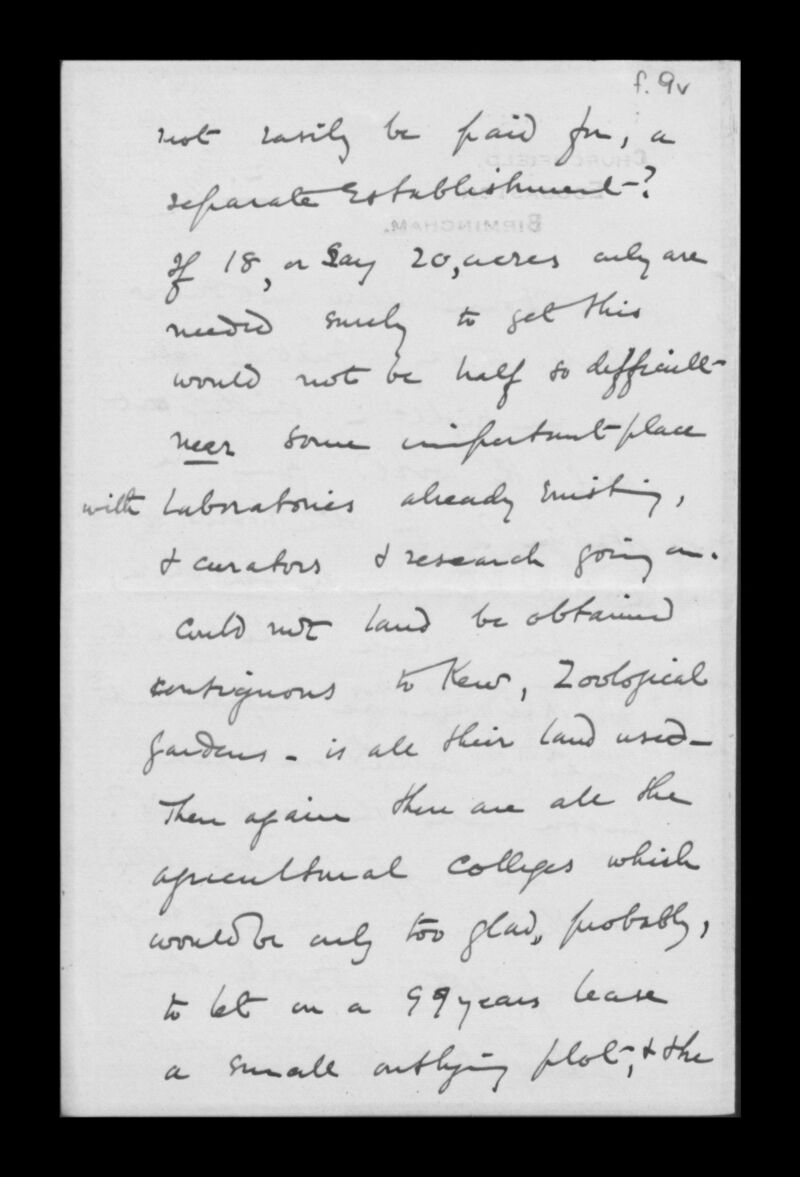 f. 9v
not easily be paid for, a
separate Establishment?
If 18, or Say 20, acres only are
needed surely to get this
would not be half so difficult
near some important place
with Laboratories already existing,
& curators & research going on.
Could not land be obtained
contiguous to Kew, Zoological
gardens - is all their land used -
Then again there are all the
agricultural Colleges which
would be only too glad, probably,
to let on a 99 years lease
a small outlying plot, & the
CHURCHFIELD,
EDGBASTON,
BIRMINGHAM.